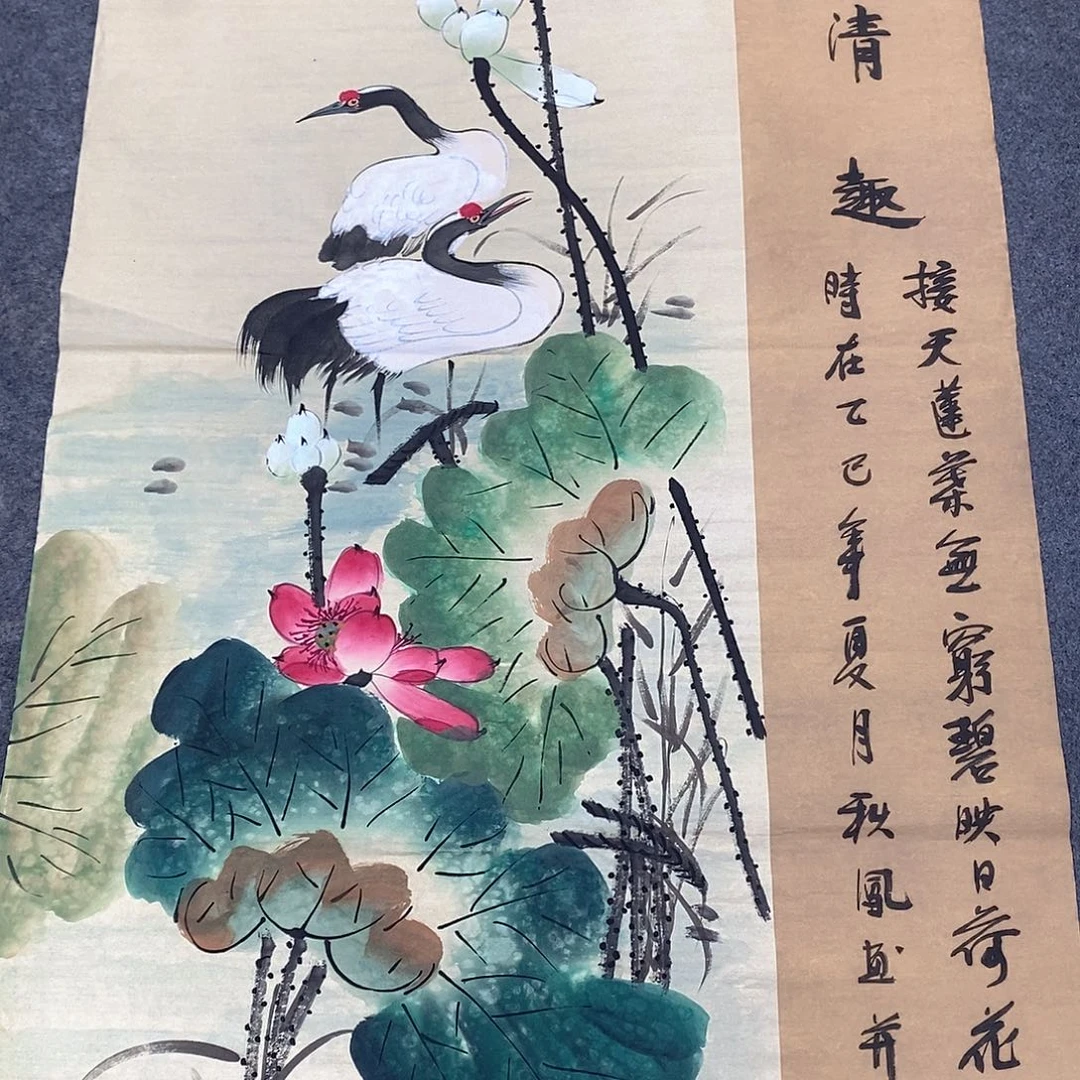 清趣
接天蓮葉無窮碧映日荷花
時在乙巳年夏月秋鳳画并